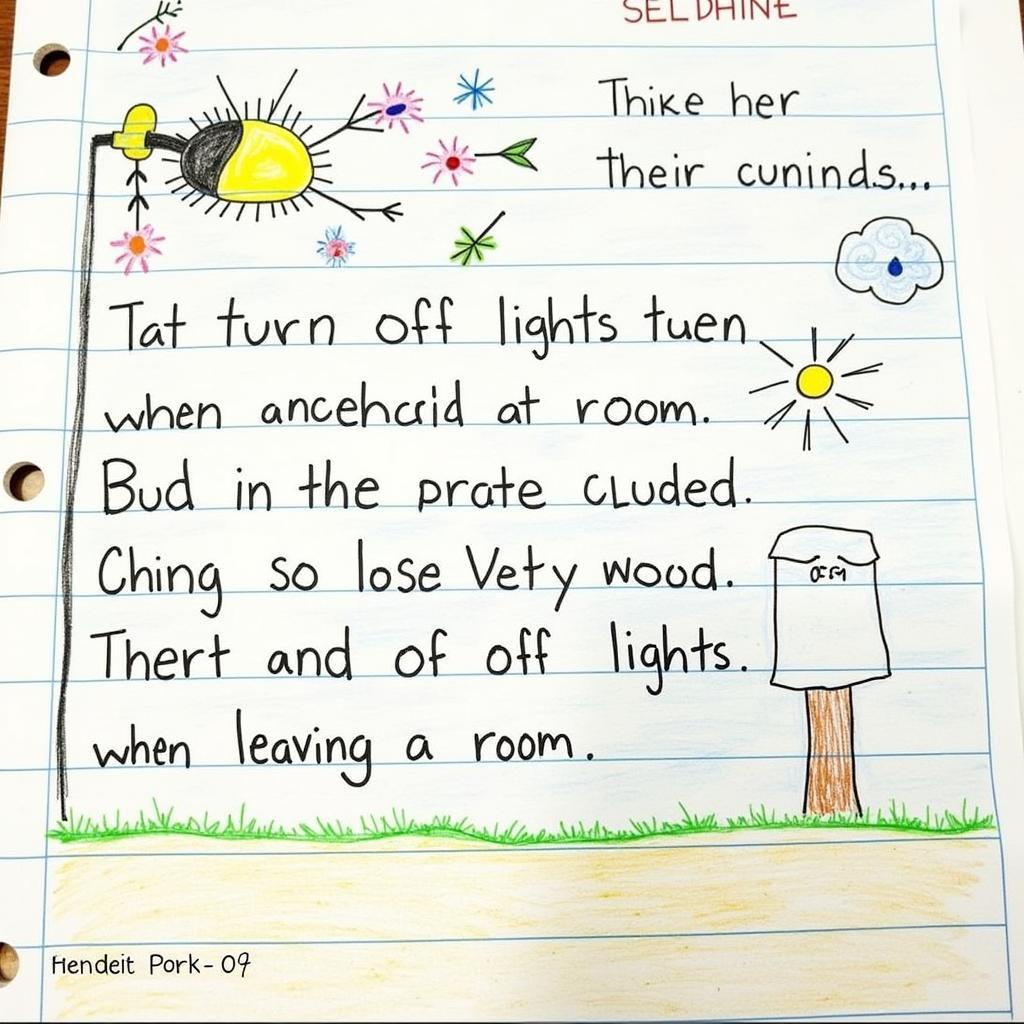 SELDHINE
Thike her
their cuninds...
Tat turn off lights tuen
when ancehcrid at room.
Bud in the prate cluded.
Ching so lose Vety wood.
Thert and of off lights.
when leaving a room.
Hendeit Pork-09